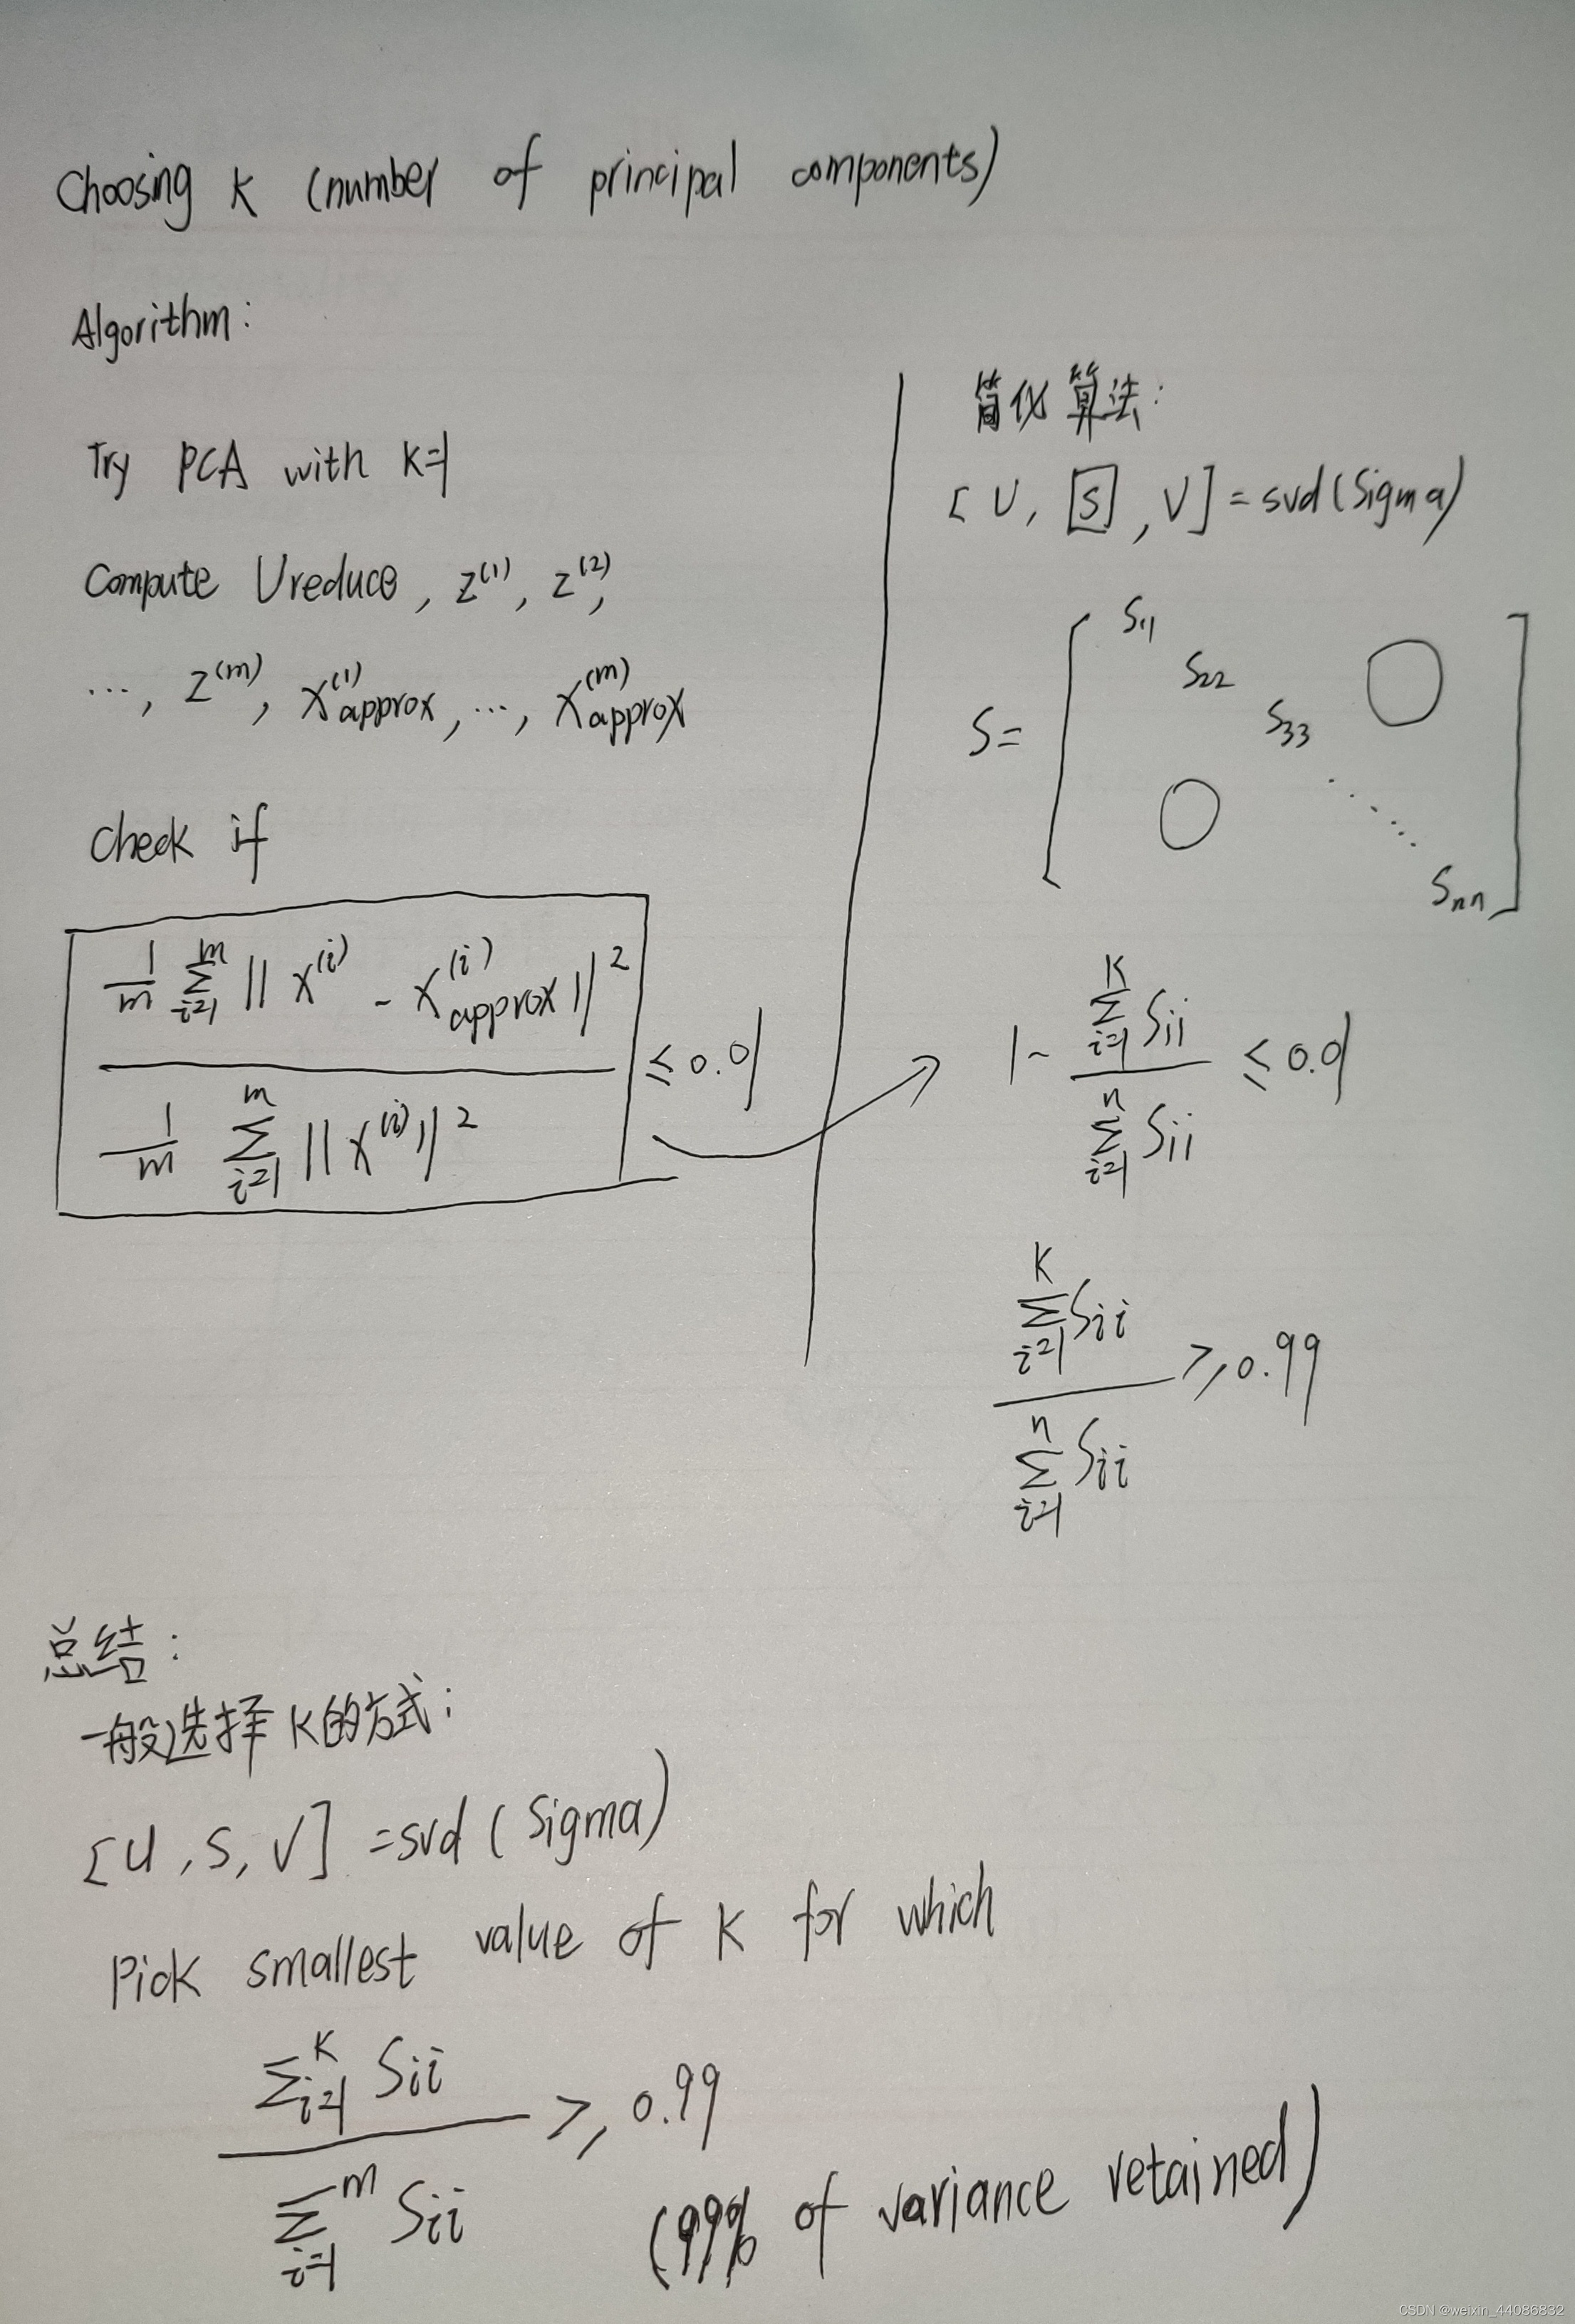 Choosing K (number of principal components)
Algorithm:
Try PCA with K=1
Compute Ureduce, z^(1), z^(2),
..., z^(m), x^(1)_approx, ..., x^(m)_approx
Check if
\frac{\frac{1}{m} \sum_{i=1}^{m} || x^(i) - x^(i)_approx ||^2}{\frac{1}{m} \sum_{i=1}^{m} || x^(i) ||^2} ≤ 0.01
简化算法:
[U, S, V] = svd(Sigma)
S = [ S_11 S_22 S_33 ... S_nn ] 0 0
1 - \frac{\sum_{i=1}^{K} S_ii}{\sum_{i=1}^{n} S_ii} ≤ 0.01
\frac{\sum_{i=1}^{K} S_ii}{\sum_{i=1}^{n} S_ii} ≥ 0.99
总结:
一般选择K的方式:
[U, S, V] = svd(Sigma)
Pick smallest value of K for which
\frac{\sum_{i=1}^{K} S_ii}{\sum_{i=1}^{m} S_ii} ≥ 0.99
(99% of variance retained)
CSDN @weixin_44086832